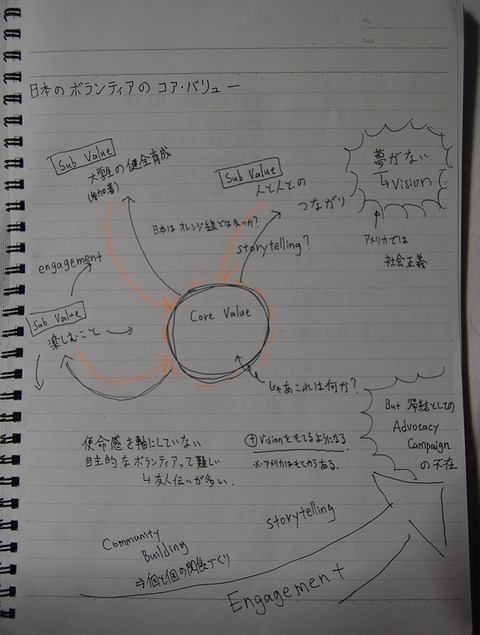 No.
Date
日本の ボランティアの コア・バリュー
Sub Value
大学生の健全育成
(参加者)
Sub Value
人と人との
つながり
夢がない
↳ Vision
アメリカでは
社会主義
日本はオレンジ線ではないか?
storytelling?
engagement
Sub Value
楽しむこと
Core Value
じゃあこれは何か?
But 帰結としての
Advocacy
Campaign
の不在
使命感を軸にしていない
自主的なボランティアって難しい
↳ 友人伝いが多い.
⊕Visionをもてるようになる
※アメリカはもとからある.
storytelling
Community
Building
⇒個と個の関係づくり
Engagement